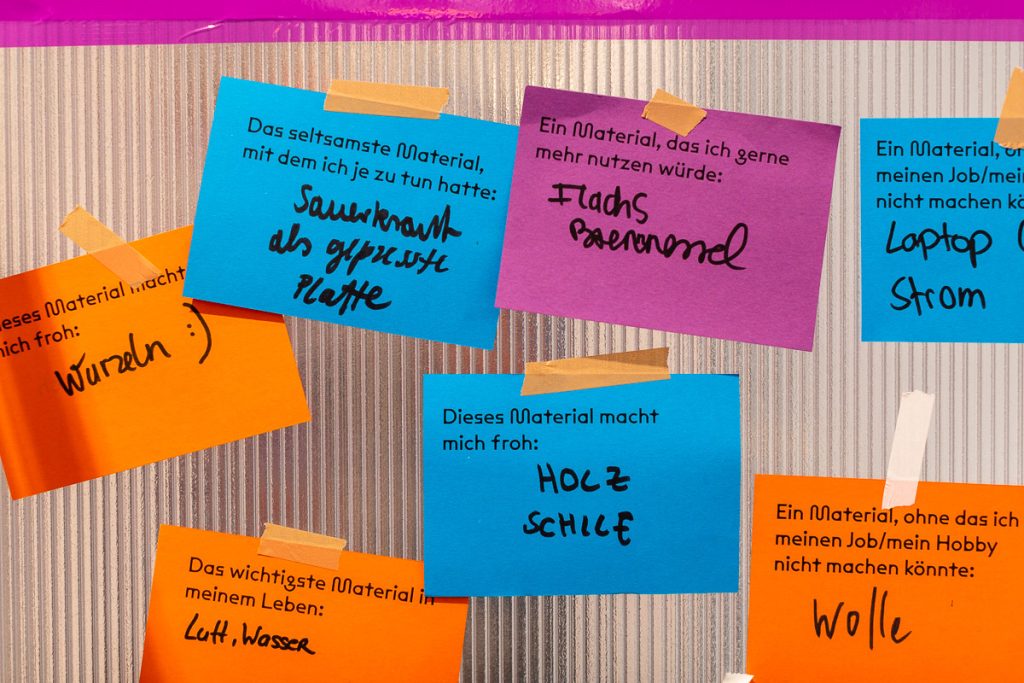 Das seltsamste Material,
mit dem ich je zu tun hatte:
Sauerkraut
als gepresste
Platte
Ein Material, das ich gerne
mehr nutzen würde:
Flachs
Ein Material, oh
meinen Job/mein
nicht machen kö
Laptop (
Strom
ieses Material macht
mich froh:
Wurzeln :)
Dieses Material macht
mich froh:
HOLZ
SCHILF
Das wichtigste Material in
meinem Leben:
Luft, Wasser
Ein Material, ohne das ich
meinen Job/mein Hobby
nicht machen könnte:
Wolle